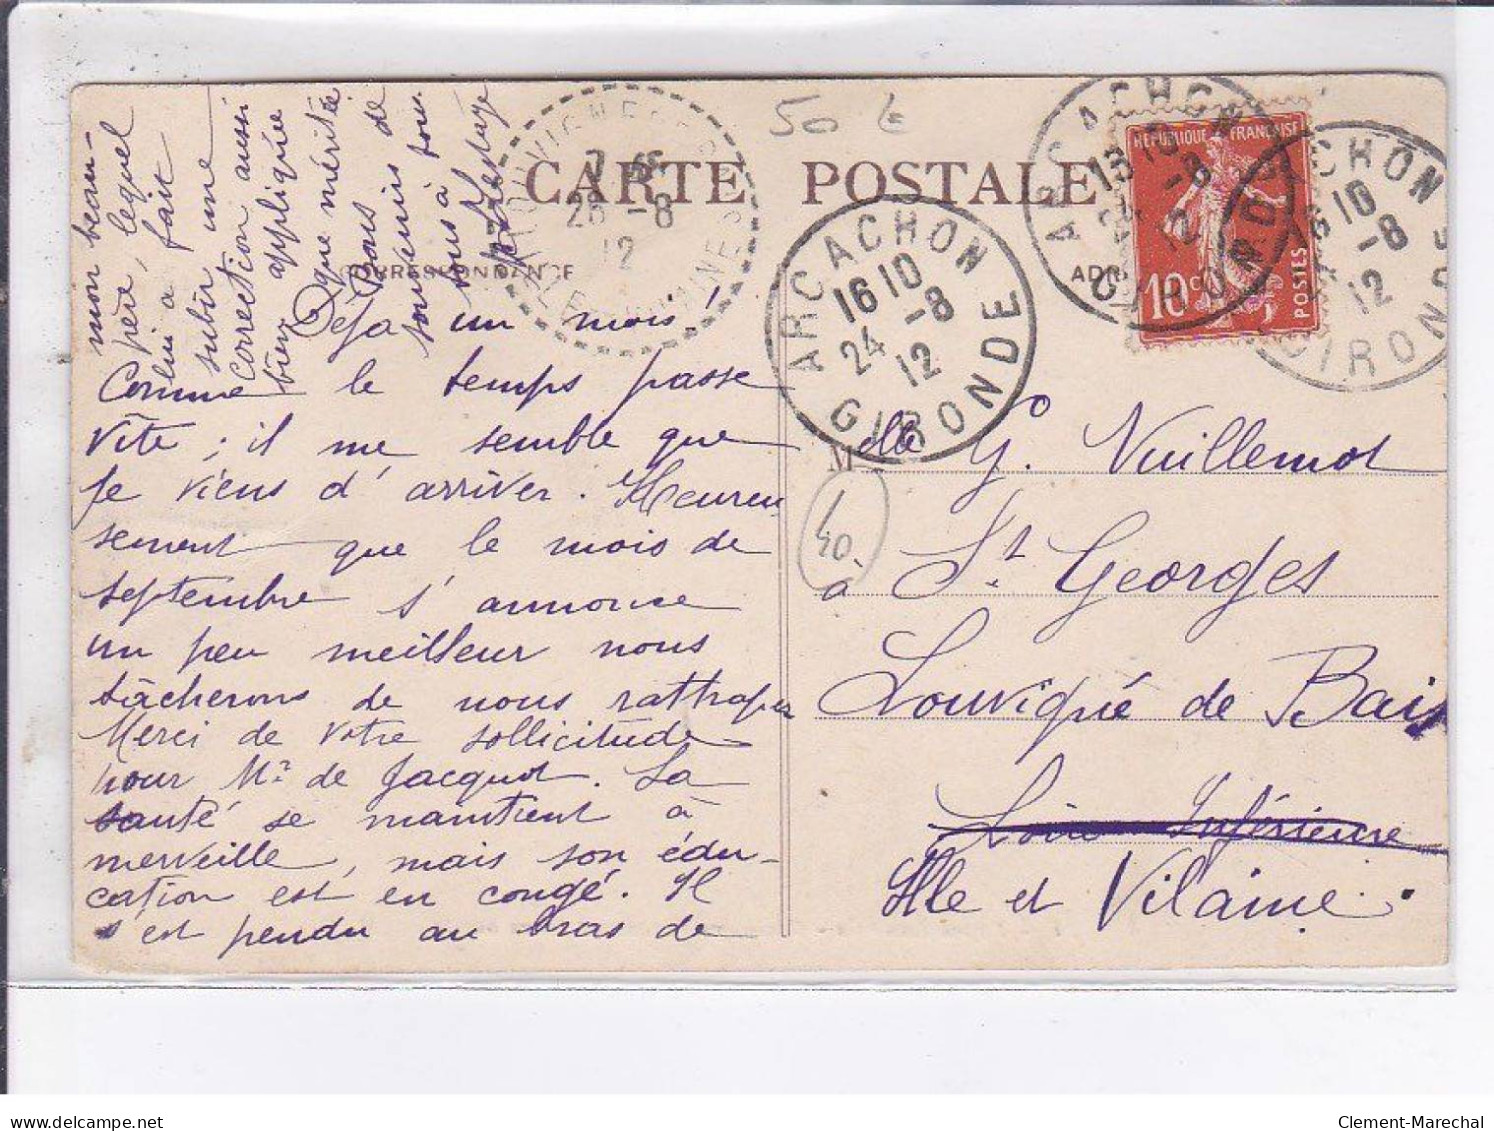 50 €
CARTE POSTALE
CORRESPONDANCE
ARCACHON
16 10
24 -8
12
GIRONDE
ARCACHON
24 -8
12
GIRONDE
ARCACHON
16 10
-8
12
GIRONDE
28 -8
12
REPUBLIQUE FRANÇAISE
10c
POSTES
Déjà un mois!
Comme le temps passe
vite ; il me semble que
je viens d'arriver. Heureu
sement que le mois de
septembre s'annonce
un peu meilleur nous
tâcherons de nous rattraper
Merci de votre sollicitude
pour Mr de Jacquot. La
santé se maintient à
merveille, mais son édu-
cation est en congé. Il
s'est pendu au bras de
mon beau-
père, lequel
lui a fait
subir une
correction aussi
bien appliquée
que méritée
Bons
souvenirs de
tous à tous
Mlle G. Vuillemot
à St Georges
Louvigné de Bais
Loire Inférieure
Ille et Vilaine.
40
Clement-Marechal